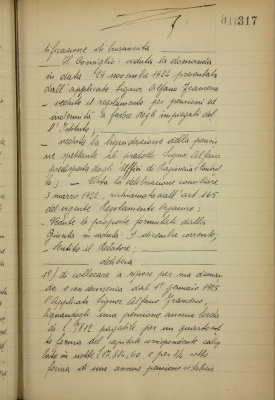 317
tificazione di buonuscita.
Il Consiglio: veduta la domanda
in data 29 novembre 1924 presentata
dall'applicato Signor Alfano Francesco
- veduto il regolamento per pensioni ed
indennità a favore degli impiegati del
l'Istituto;
- veduta la liquidazione della pensio
ne spettante al predetto Signor Alfano
predisposta dagli Uffici di Ragioneria e Control
lo; - Vista la deliberazione consiliare
3 marzo 1922, richiamata dall'art. 165
del vigente Regolamento Organico;
- Vedute le proposte formulate dalla
Giunta in seduta 9 dicembre corrente;
- Sentito il Relatore;
delibera
1°) di collocare a riposo per sua doman
da e con decorrenza dal 1° gennaio 1925
l'applicato Signor Alfano Francesco,
assegnandogli una pensione annua lorda
di L. pagabile per un quarto sot
to forma del capitale corrispondente calco
lato in nette e per 3/4 sotto
forma di una annua pensione vitalizia